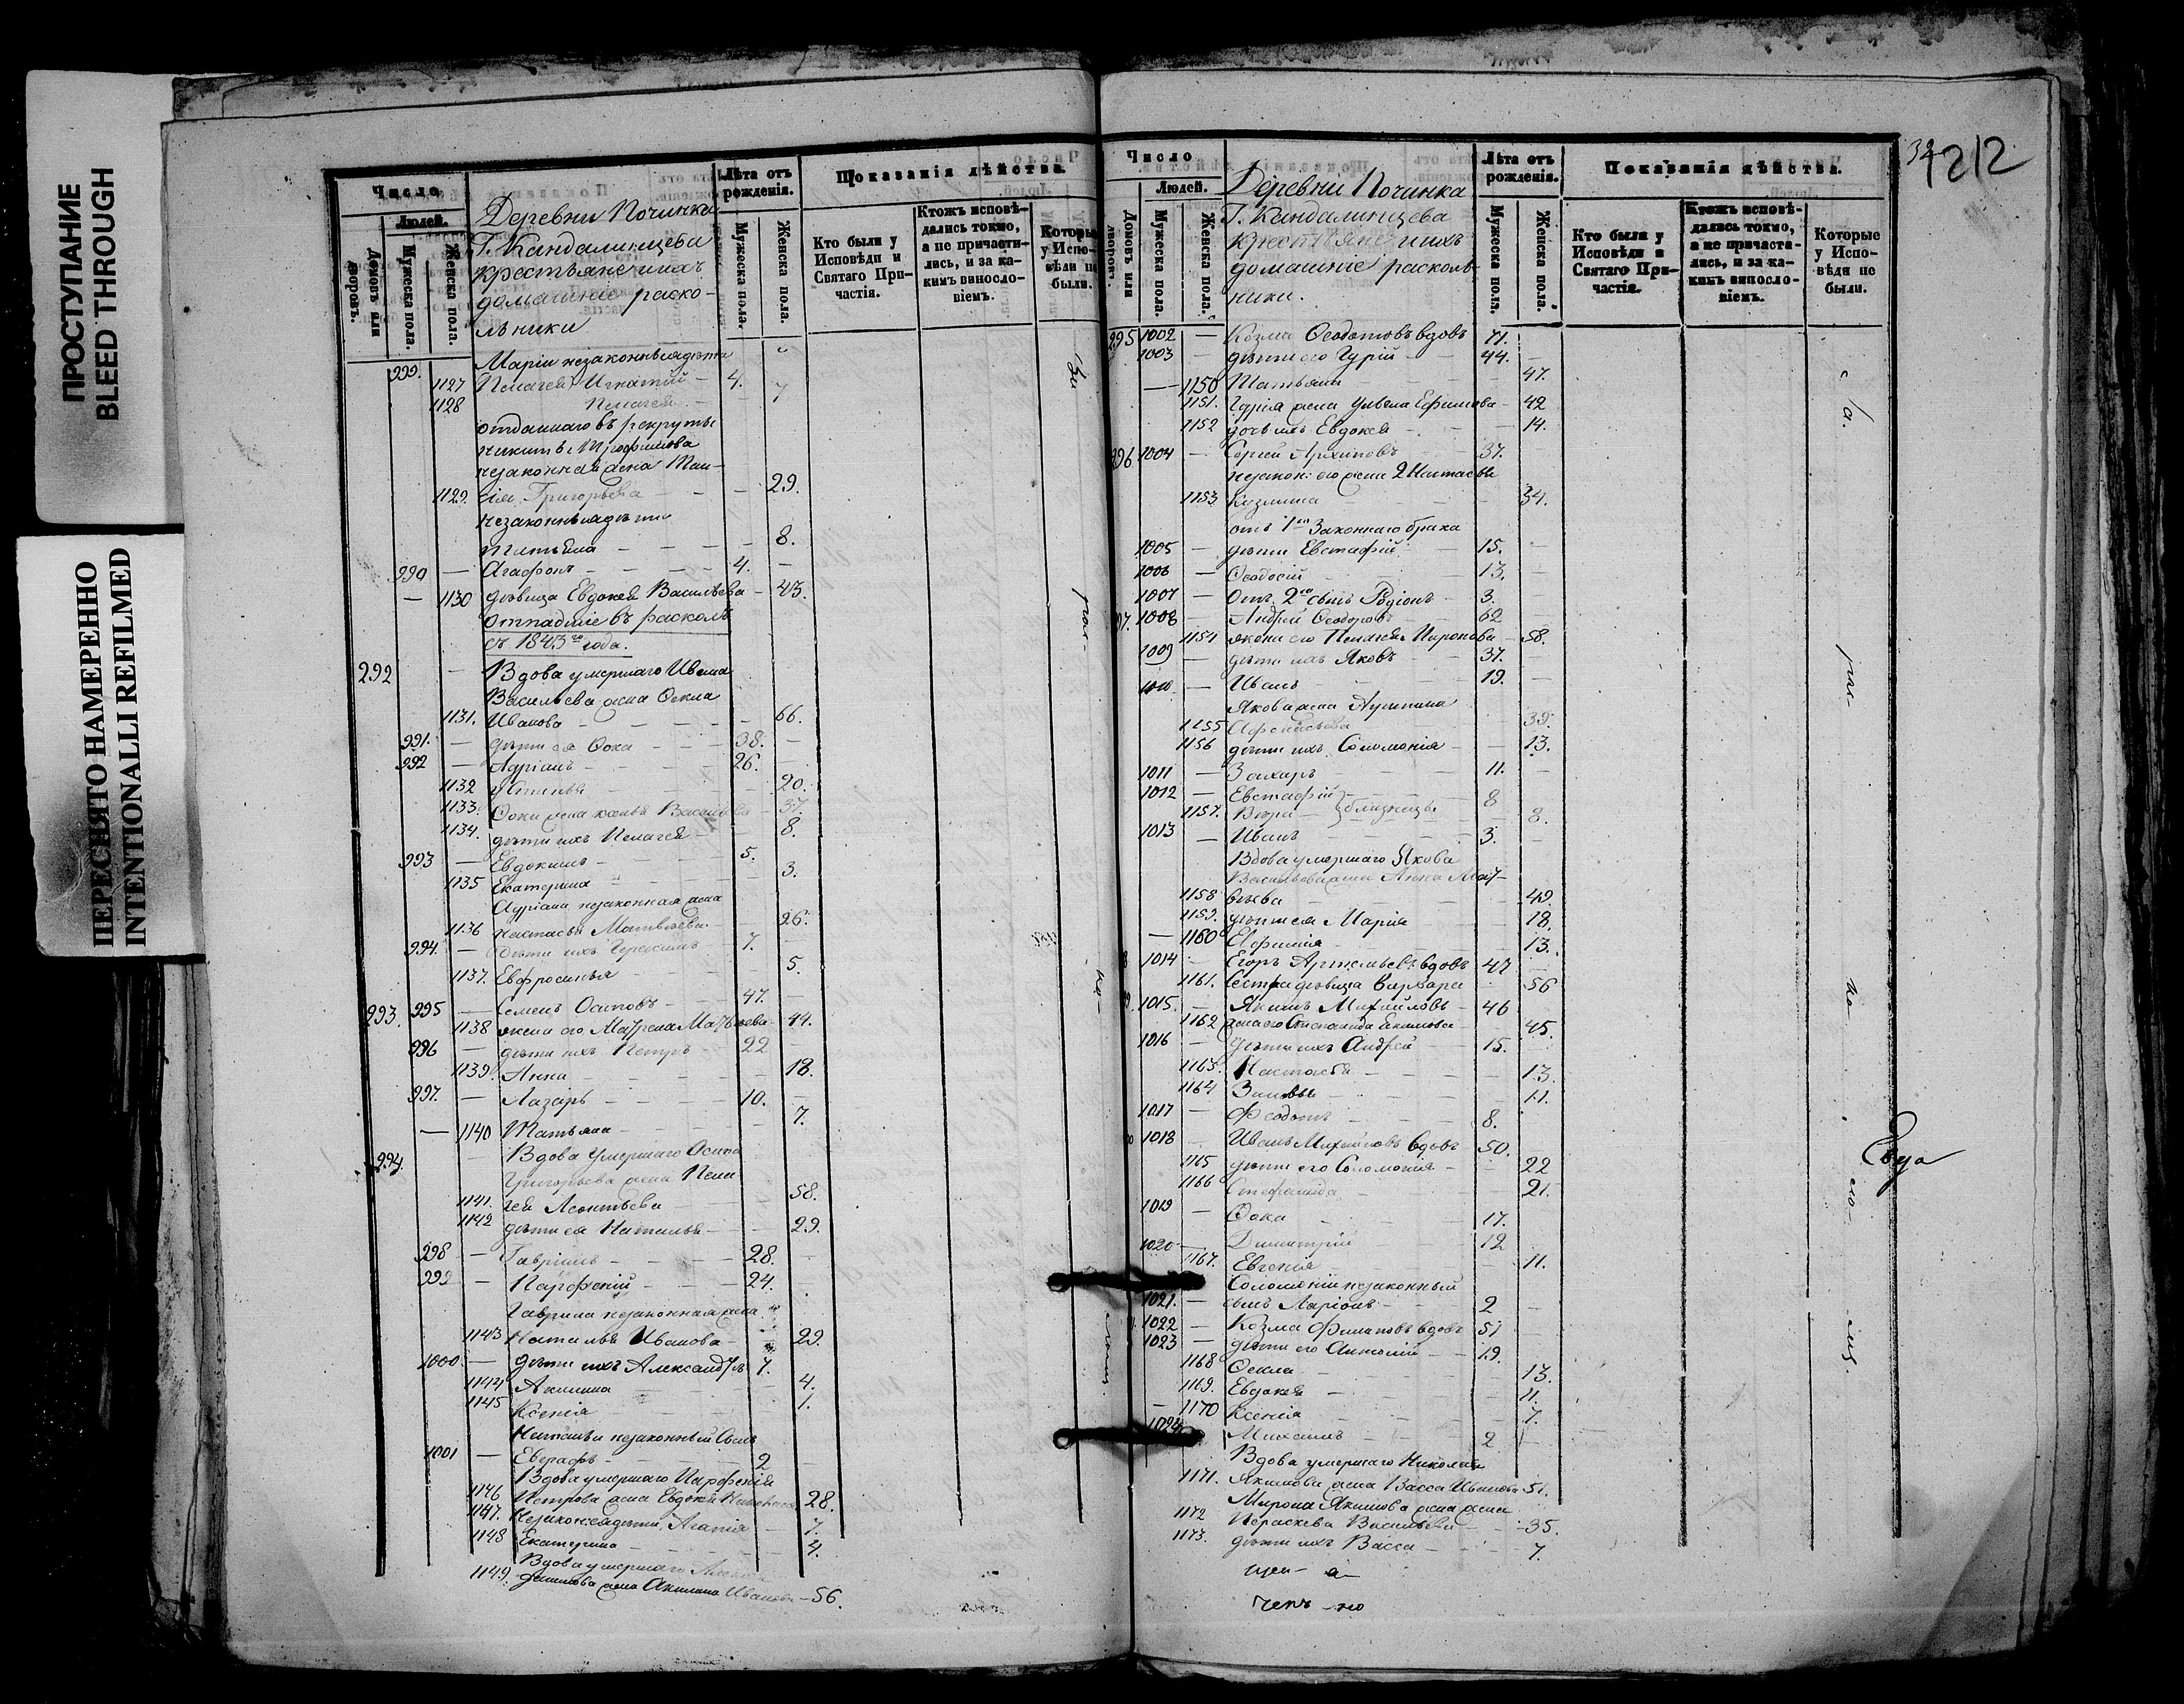 ПРОСТУПАНИЕ
BLEED THROUGH
ПЕРЕСНЯТО НАМЕРЕННО
INTENTIONALLI REFILMED
Число
Людей.
Домовъ или дворовъ.
Мужеска пола.
Женска пола.
Деревни Починка
Г. Кандалинцева
Крестьяне и ихъ
домашніе раско-
льники
Лѣта отъ рожденія.
Мужеска пола.
Женска пола.
Показанія дѣйства.
Кто были у Исповѣди и Святаго При-частія.
Ктожъ исповѣ-дались токмо, а не причасти-лись, и за ка-кимъ винословіемъ.
Которые у Испо-вѣди не были.
Маріи незаконныя дѣти
999. Игнатій - 4.
1127
1128 Пелагея - 7
отданнаго въ рекруты
Никиты Трофимова
незаконная жена
1129. Григорьева - 29.
незаконныя дѣти
Татьяна - 8.
990 - Агафонъ - 4.
1130 дѣвица Евдокея Васильева - 43.
Отпадшіе въ расколъ
съ 1843го года.
292 Вдова умершаго Ивана
Васильева жена Фекла
1131. Иванова - 66.
991. - дѣти ея Фока - 38.
992 - Адріанъ - 26.
1132 Устинья - 20.
1133. Фоки жена Васильева - 37.
1134. дѣти ихъ Пелагея - 8.
993 - Евдокимъ - 5.
1135 Екатерина - 3.
Адріана незаконная жена
1136 Настасья Матвѣева - 26.
994. - дѣти ихъ Герасимъ - 7.
1137. Евфросинья - 5.
293. 995 - Семенъ Осиповъ - 47.
1138 жена его Матрена Матвѣева - 44.
996 - дѣти ихъ Петръ - 22
1139. Анна - 18.
997. - Лазарь - 10.
1140 Татьяна - 7.
294. Вдова умершаго Осипа
Григорьева жена Пела
1141. гея Леонтьева - 58.
1142 дѣти ея Наталья - 29.
998 - Гавріилъ - 28.
999 - Парфеній - 24.
Гаврила незаконная жена
1143 Наталья Иванова - 29.
1000. - дѣти ихъ Александръ 7.
1144 Акилина - 4.
1145 Ксенія - 1.
Натальи незаконный сынъ
1001 - Евграфъ - 2
Вдова умершаго Парфенія
1146 Петрова жена Евдокея 28.
1147. Незакон. дѣти, Агапія - 7.
1148 Екатерина - 4.
Вдова умершаго
1149. жена Акилина Иванова - 56.
34 212
Число
Людей.
Домовъ или дворовъ.
Мужеска пола.
Женска пола.
Деревни Починка
Г. Кандалинцева
Крестьяне и ихъ
домашніе расколь-
ники.
Лѣта отъ рожденія.
Мужеска пола.
Женска пола.
Показанія дѣйства.
Кто были у Исповѣди и Святаго При-частія.
Ктожъ исповѣ-дались токмо, а не причаста-лись, и за ка-кимъ винословіемъ.
Которые у Испо-вѣди не были.
295 1002 - Козма Ѳеодотовъ вдовъ 71.
1003 - дѣти его Гурій - 44.
1150 Татьяна - 47.
1151. Гурія жена Ульяна Ефимова - 42
1152 дочь ихъ Евдокея - 14.
296 1004 - Сергій Архиповъ - 37.
незакон: его жена 2 Настасья
1153 Кузмина - 34.
отъ 1го Законнаго брака
1005 - дѣти Евстафій - 15.
1006 - Ѳеодосій - 13.
1007 - Отъ 2го сынъ Родіонъ - 3.
97. 1008 - Андрей Ѳеодоровъ - 62
1154 жена его Пелагея Миронова - 58.
1009 - дѣти ихъ Яковъ - 37.
1010 - Иванъ - 19.
Якова жена
1155 - 39.
1156 дѣти ихъ Соломонія - 13.
1011 - Захаръ - 11.
1012 - Евстафій } близнецы 8
1157. Вѣра - 8.
1013 - Иванъ - 3.
Вдова умершаго Якова
Васильева жена Анна Мат-
1158 вѣева - 49.
1159. дѣти ея Марія - 18.
1160 Евфимія - 13.
1014 - Егоръ Артемьевъ вдовъ 47
1161. сестра дѣвица Варвара - 56
1015. - Якимъ Михайловъ - 46
1162 жена его Степанида Екимова - 45.
1016 - дѣти ихъ Андрей - 15.
1163. Настасья - 13.
1164 Зиновья - 11.
1017 - Ѳеодотъ - 8.
1018 - Иванъ Михайловъ вдовъ 50.
1165 дѣти его Соломонія - 22
1166 Стефанида - 21.
1019 - Фока - 17.
1020 - Димитрій - 12
1167. Евгенія - 11.
Соломоніи незаконный
1021. - сынъ Ларіонъ - 2
1022 - Козма Филиповъ вдовъ 51
1023 - дѣти его Антоній - 19.
1168 Фекла - 13.
1169. Евдокея - 11.
1170 Ксенія - 7.
1024 Михаилъ - 2
Вдова умершаго Николая
1171. Якимова жена Васса Иванова 51.
Мирона Якимова жена
1172 Параскева Васильева - 35.
1173. дѣти ихъ Васса - 7.